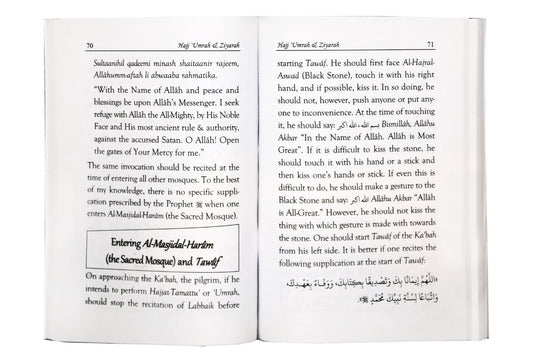 70
Hajj 'Umrah & Ziyarah
Sultaanihil qadeemi minash shaitaanir rajeem,
Allâhumm-aftah li abwaaba rahmatika.
“With the Name of Allâh and peace and
blessings be upon Allâh's Messenger. I seek
refuge with Allâh the All-Mighty, by His Noble
Face and His most ancient rule & authority,
against the accursed Satan. O Allâh! Open
the gates of Your Mercy for me.”
The same invocation should be recited at the
time of entering all other mosques. To the best
of my knowledge, there is no specific suppli-
cation prescribed by the Prophet ﷺ when one
enters Al-Masjidal-Harâm (the Sacred Mosque).
Entering Al-Masjidal-Harâm
(the Sacred Mosque) and Tawâf
On approaching the Ka'bah, the pilgrim, if he
intends to perform Hajjat-Tamattu' or 'Umrah,
should stop the recitation of Labbaik before
Hajj 'Umrah & Ziyarah
71
starting Tawâf. He should first face Al-Hajral-
Aswad (Black Stone), touch it with his right
hand, and if possible, kiss it. In so doing, he
should not, however, push anyone or put any-
one to inconvenience. At the time of touching
it, he should say: بسم الله ، الله اكبر Bismillâh, Allâhu
Akbar “In the Name of Allâh. Allâh is Most
Great”. If it is difficult to kiss the stone, he
should touch it with his hand or a stick and
then kiss one's hand or stick. If even this is
difficult to do, he should make a gesture to the
Black Stone and say: الله اكبر Allâhu Akbar “Allâh
is All-Great.” However, he should not kiss the
thing with which gesture is made with towards
the stone. One should start Tawâf of the Ka'bah
from his left side. It is better if one recites the
following supplication at the start of Tawâf:
«اللَّهُمَّ إِيمَانًا بِكَ وَتَصْدِيقًا بِكِتَابِكَ، وَوَفَاءً بِعَهْدِكَ،
وَاتِّبَاعًا لِسُنَّةِ نَبِيِّكَ مُحَمَّدٍ ﷺ».